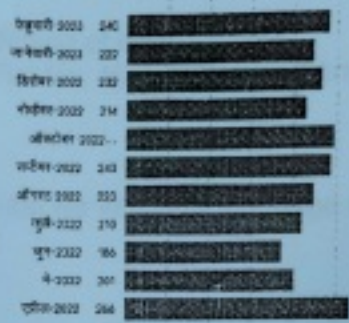 फेब्रुवारी 2023 240
जानेवारी-2023 222
डिसेंबर 2022 232
नोव्हेंबर-2022 214
ऑक्टोबर 2022--
सप्टेंबर-2022 243
ऑगस्ट 2022 223
जुलै-2022 210
जून-2022 186
मे-2022 201
एप्रिल-2022